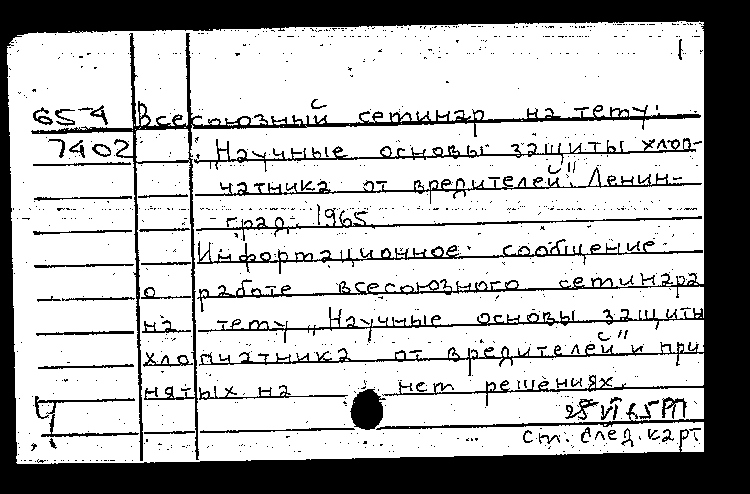 1
65-4 Всесоюзный семинар на тему:
7402 „Научные основы защиты хлоп-
чатника от вредителей". Ленин-
град. 1965.
Информационное сообщение
о работе всесоюзного семинара
на тему „Научные основы защиты
хлопчатника от вредителей" и при
нятых на нем решениях.
Ч 25 VI 65 РП
См. след. карт